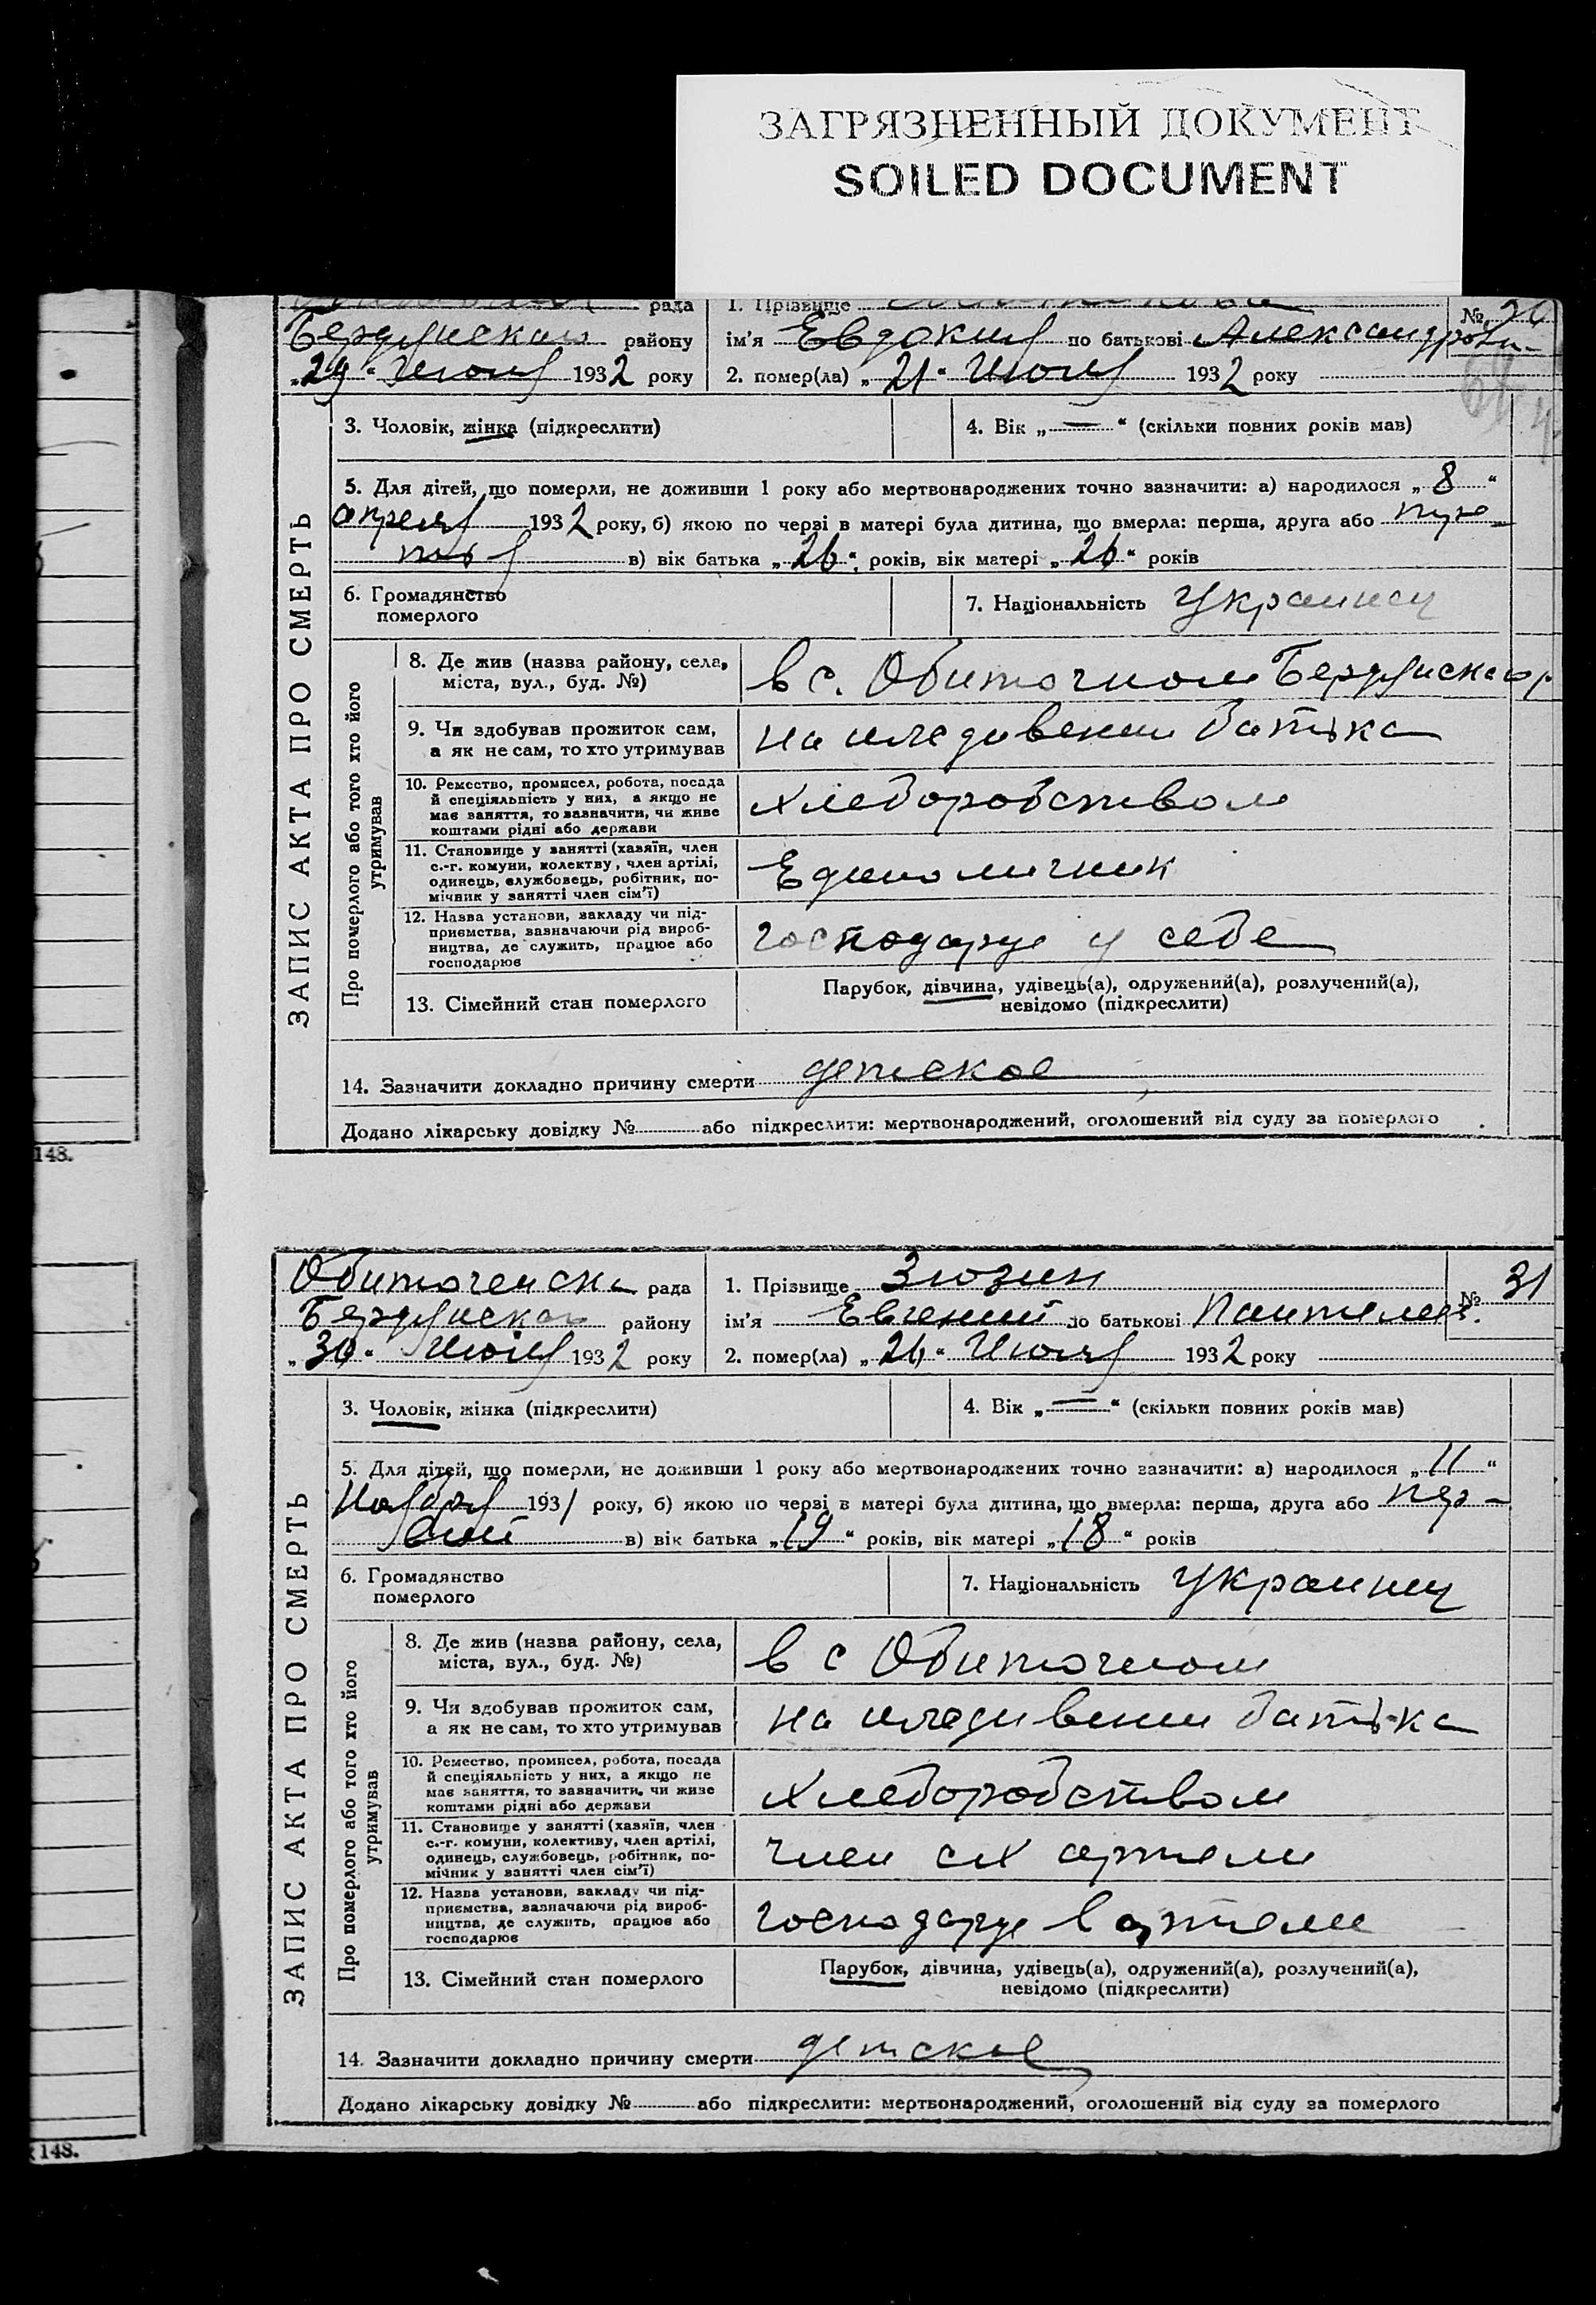 ЗАГРЯЗНЕННЫЙ ДОКУМЕНТ
SOILED DOCUMENT
рада 1. Прізвище №
Бердянского району ім'я Евдокия по батькові Александровн-
„29“ Июля 1932 року 2. помер(ла) „21“ Июля 1932 року
3. Чоловік, жінка (підкреслити) 4. Вік „—“ (скільки повних років мав)
5. Для дітей, що померли, не доживши 1 року або мертвонароджених точно зазначити: а) народилося „8“
апреля 1932 року, б) якою по черві в матері була дитина, що вмерла: перша, друга або
в) вік батька „26“ років, вік матері „26“ років
6. Громадянство
померлого
7. Національність Украинец
ЗАПИС АКТА ПРО СМЕРТЬ
Про померлого або того хто його
утримував
8. Де жив (назва району, села,
міста, вул., буд. №)
в с. Обиточном Бердянского р
9. Чи здобував прожиток сам,
а як не сам, то хто утримував
на иждивении батька
10. Ремество, промисел, робота, посада
й спеціяльність у них, а якщо не
має заняття, то зазначити, чи живе
коштами рідні або держави
хлеборобством
11. Становище у занятті (хазяїн, член
с.-г. комуни, колектву, член артілі,
одинець, службовець, робітник, по-
мічник у занятті член сім'ї)
Единоличник
12. Назва установи, закладу чи під-
приємства, зазначаючи рід вироб-
ництва, де служить, працює або
господарює
господарує у себе
13. Сімейний стан померлого
Парубок, дівчина, удівець(а), одружений(а), розлучений(а),
невідомо (підкреслити)
14. Зазначити докладно причину смерти детское
Додано лікарську довідку № або підкреслити: мертвонароджений, оголошений від суду за померлого
148.
Обиточенска рада 1. Прізвище Зюзин № 31
Бердянского району ім'я Евгений по батькові Пантелеев.
„30“ Июля 1932 року 2. помер(ла) „26“ Июля 1932 року
3. Чоловік, жінка (підкреслити) 4. Вік „—“ (скільки повних років мав)
5. Для дітей, що померли, не доживши 1 року або мертвонароджених точно зазначити: а) народилося „11“
Ноября 1931 року, б) якою по черві в матері була дитина, що вмерла: перша, друга або пер-
вий в) вік батька „19“ років, вік матері „18“ років
6. Громадянство
померлого
7. Національність Украинец
ЗАПИС АКТА ПРО СМЕРТЬ
Про померлого або того хто його
утримував
8. Де жив (назва району, села,
міста, вул., буд. №)
в с Обиточном
9. Чи здобував прожиток сам,
а як не сам, то хто утримував
на иждивении батька
10. Ремество, промисел, робота, посада
й спеціяльність у них, а якщо не
має заняття, то зазначити, чи живе
коштами рідні або держави
хлеборобством
11. Становище у занятті (хазяїн, член
с.-г. комуни, колективу, член артілі,
одинець, службовець, робітник, по-
мічник у занятті член сім'ї)
член сх артели
12. Назва установи, закладу чи під-
приємства, зазначаючи рід вироб-
ництва, де служить, працює або
господарює
господарує в артели
13. Сімейний стан померлого
Парубок, дівчина, удівець(а), одружений(а), розлучений(а),
невідомо (підкреслити)
14. Зазначити докладно причину смерти детское
Додано лікарську довідку № або підкреслити: мертвонароджений, оголошений від суду за померлого
148.